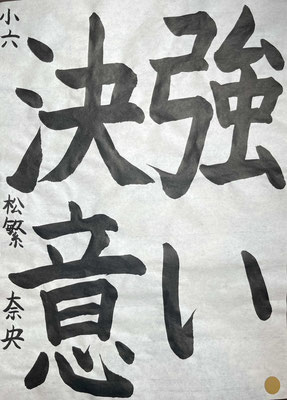 強い
決意
小六 松繁 奈央